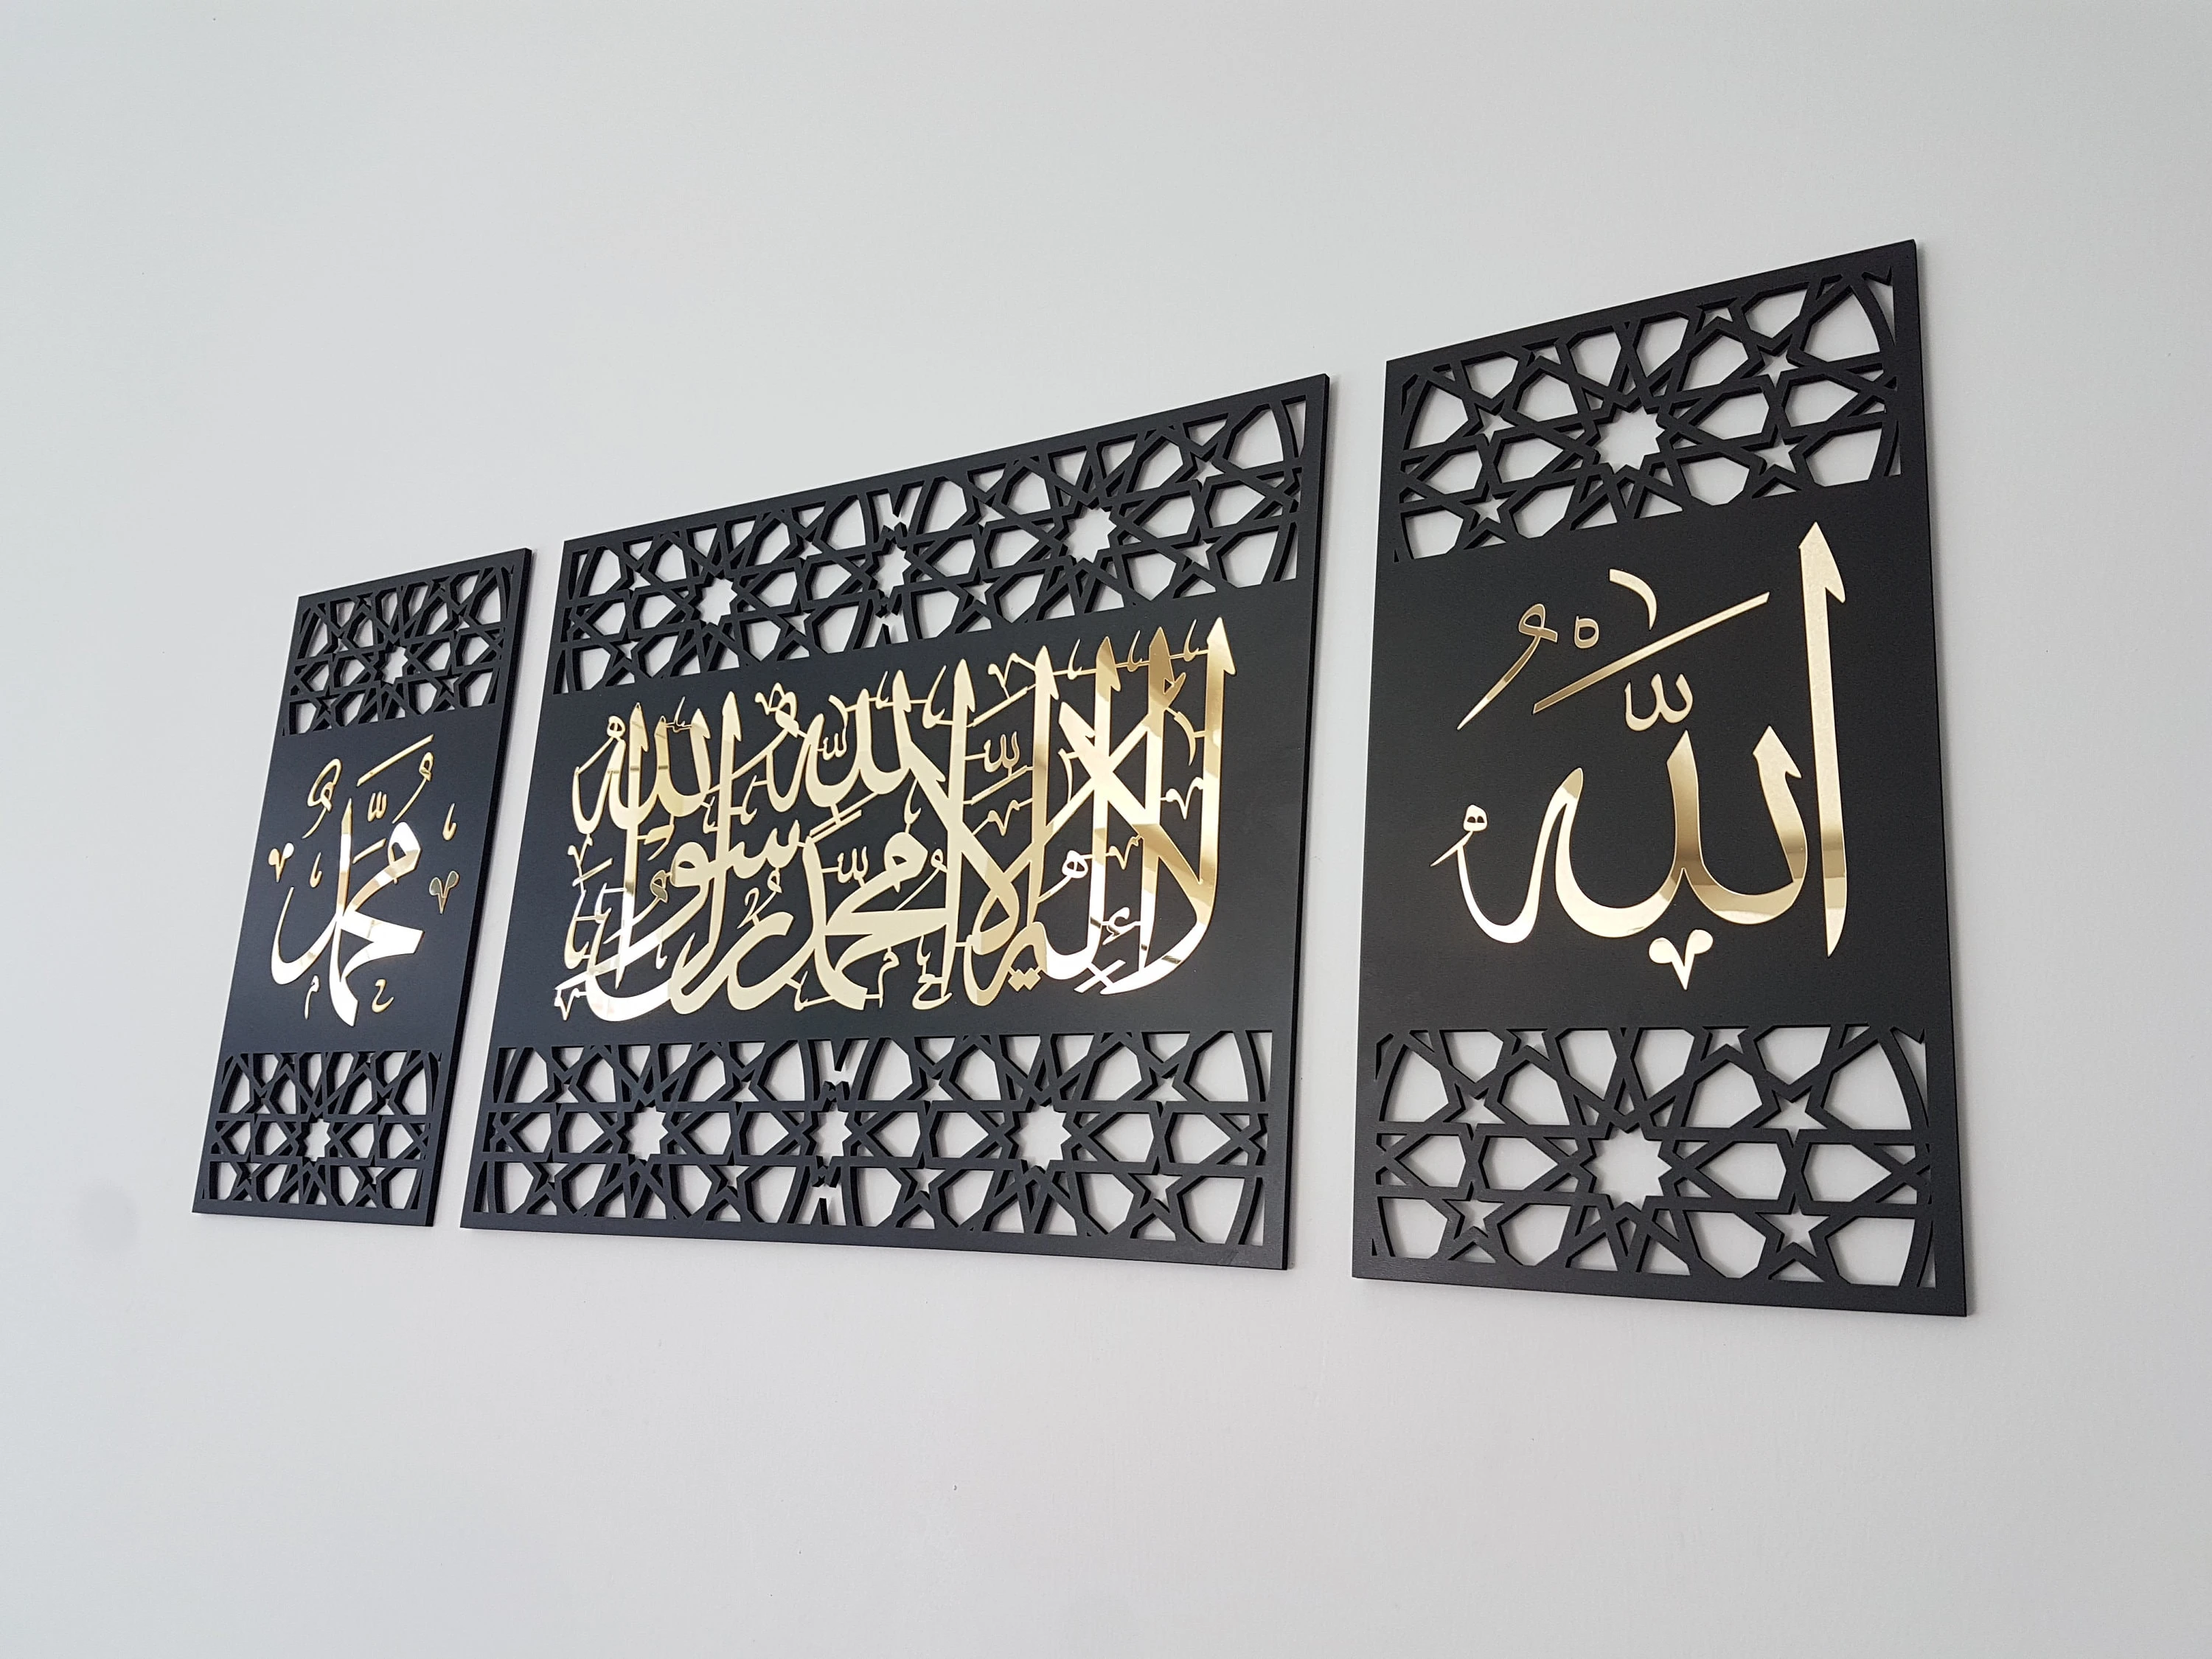 الله
لا إله إلا الله محمد رسول الله
محمد